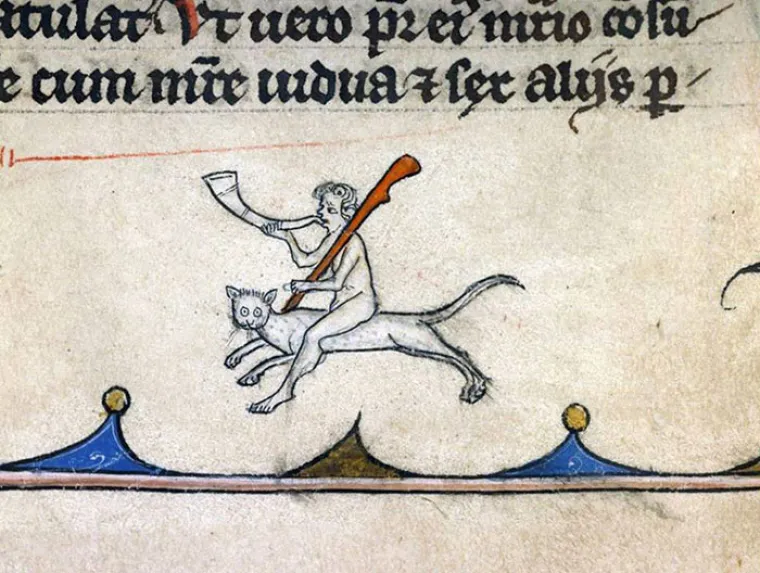 atulat Vt uero pr ei initio cosu
e cum mr̄e uidua ⁊ sex alijs p